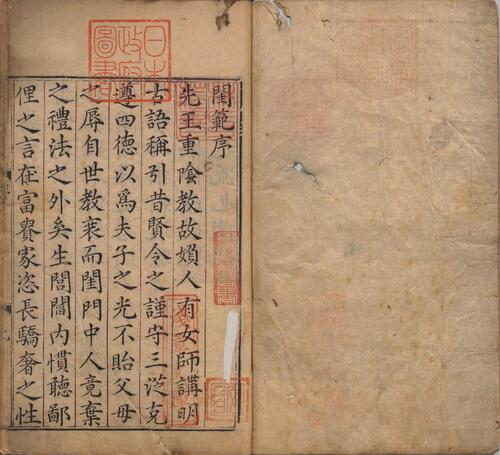 閨範序
先王重陰教故嬪人有女師講明
古語稱引昔賢令之謹守三從克
遵四德以爲夫子之光不貽父母
之辱自世教衰而閨門中人竟棄
之禮法之外矣生閭閻内慣聽鄙
俚之言在富貴家恣長驕奢之性
日本
政府
圖書